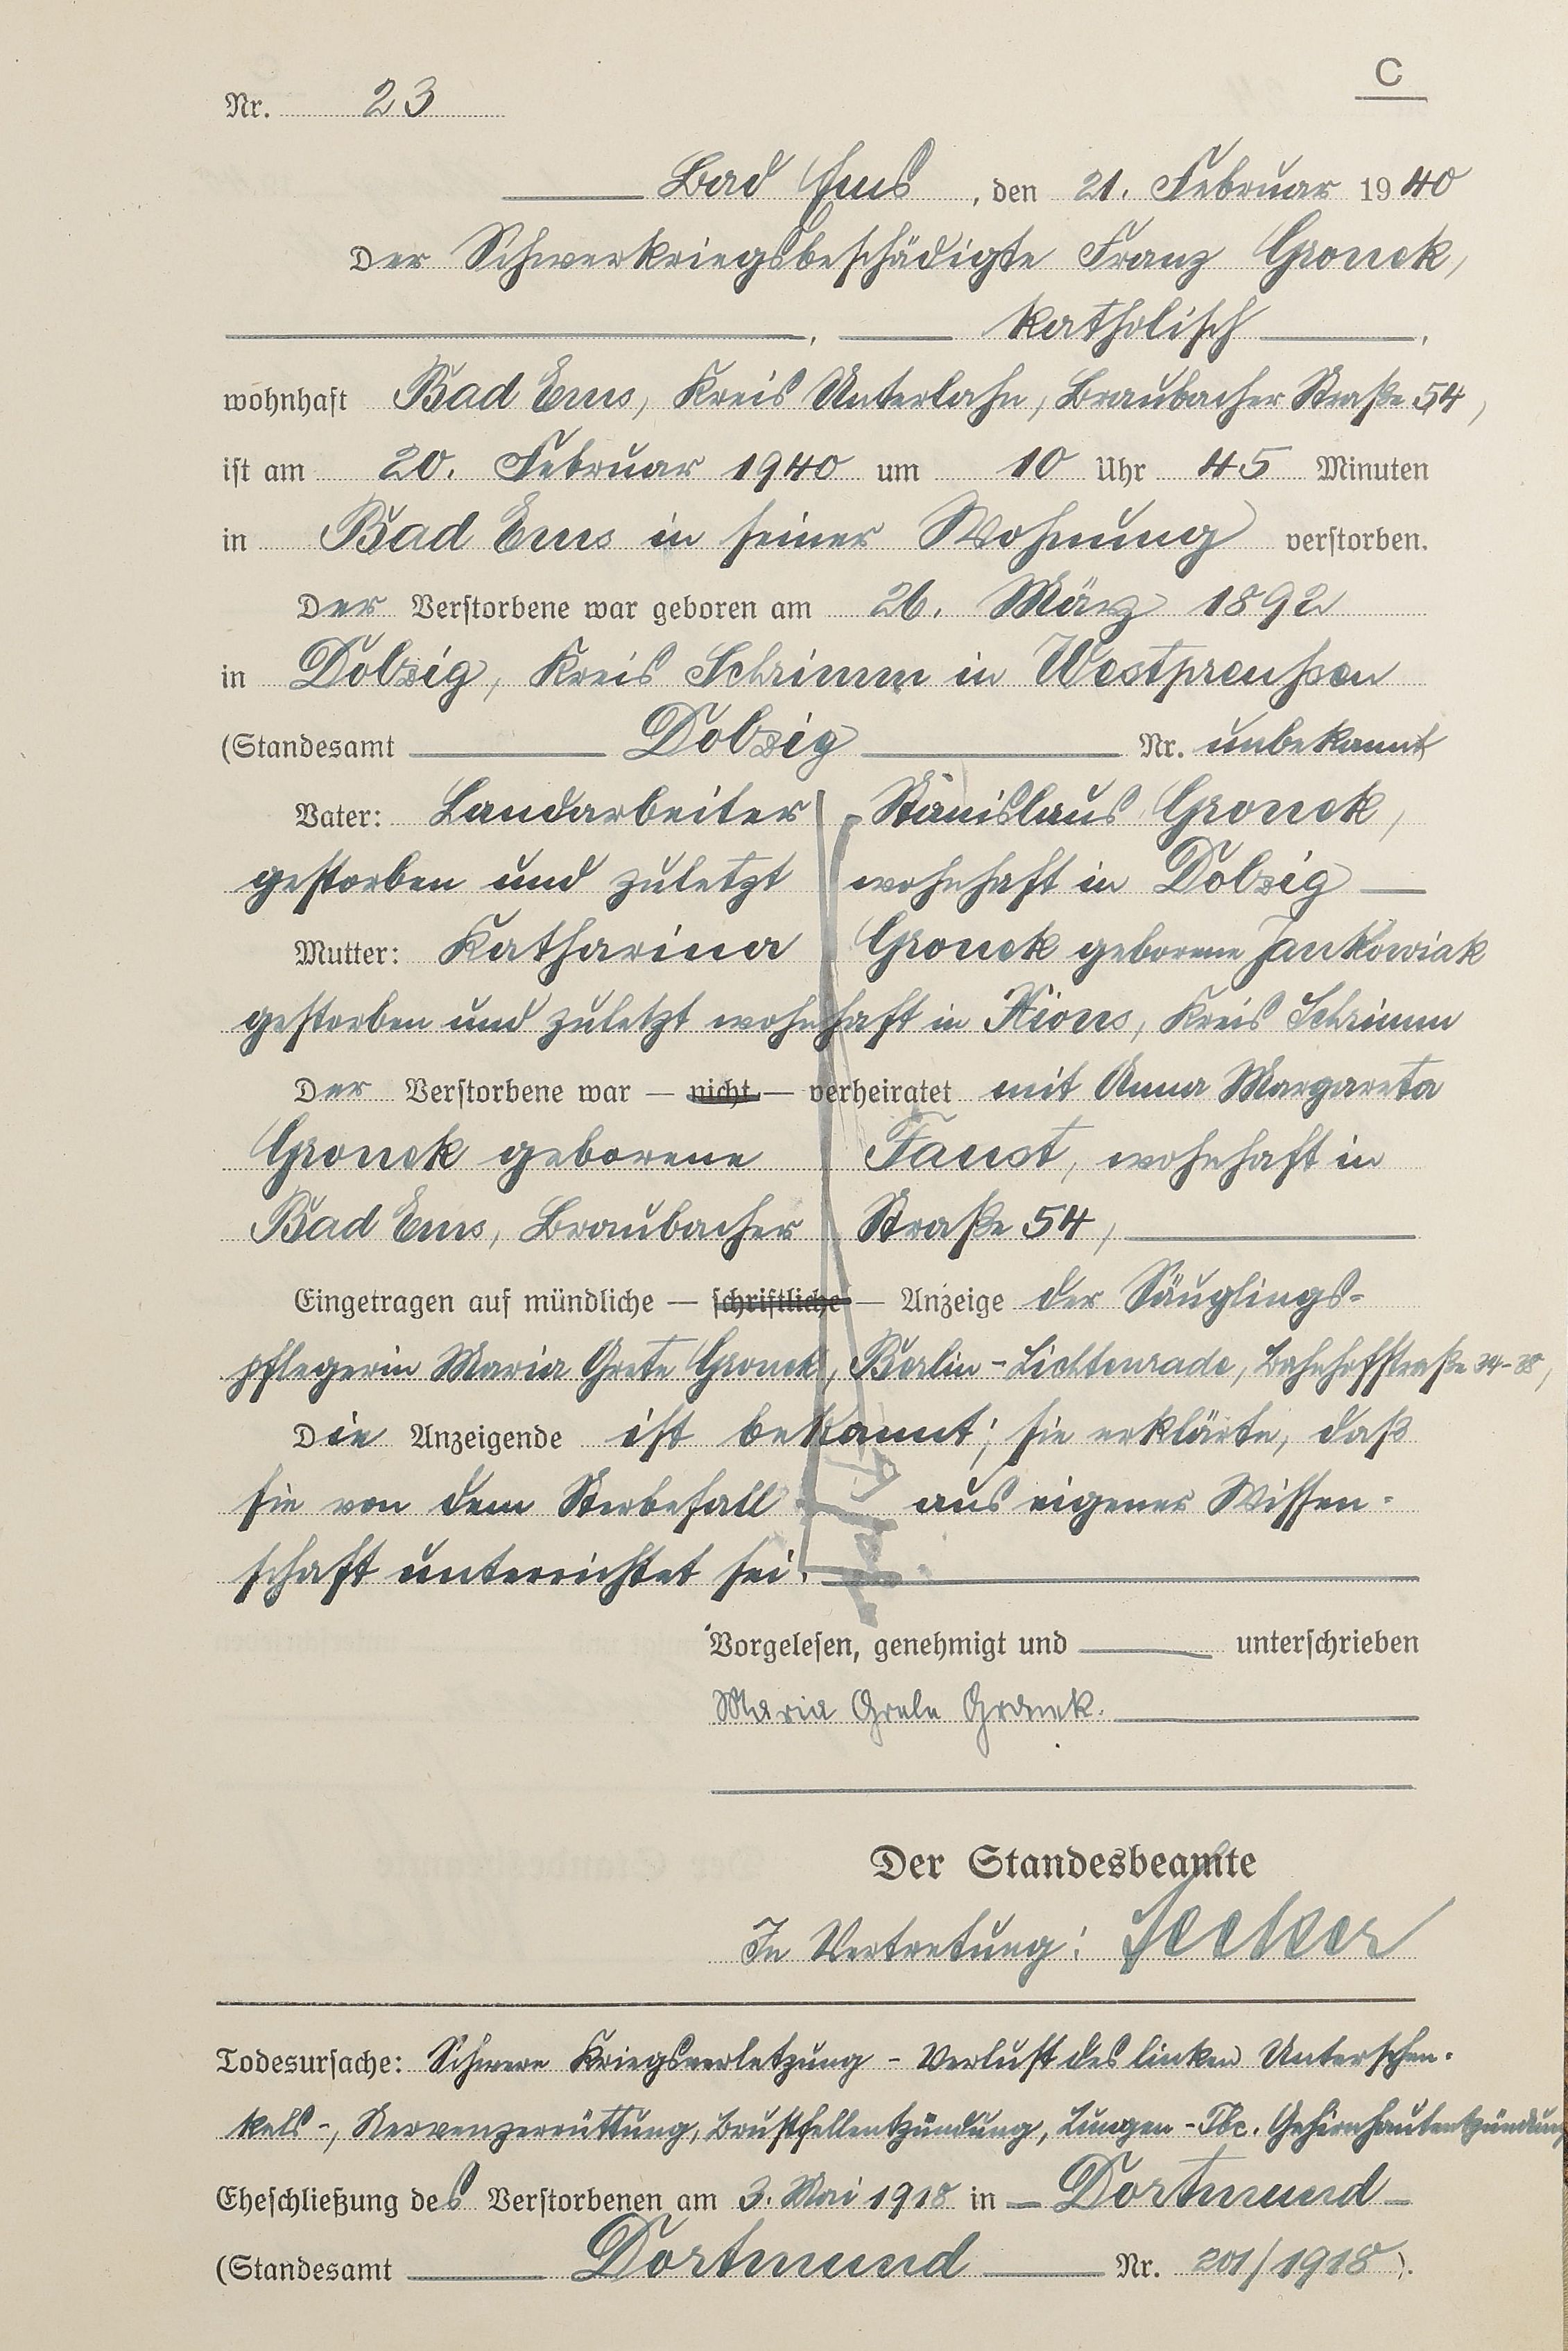 C
Nr. 23
Bad Ems, den 21. Februar 1940
Der Schwerkriegsbeschädigte Franz Gronek,
, katholisch,
wohnhaft Bad Ems, Kreis Unterlahn, Braubacher Straße 54,
ist am 20. Februar 1940 um 10 Uhr 45 Minuten
in Bad Ems in seiner Wohnung verstorben.
Der Verstorbene war geboren am 26. März 1892
in Dolzig, Kreis Schrimm in Westpreußen
(Standesamt Dolzig Nr. unbekannt)
Vater: Landarbeiter Stanislaus Gronek,
gestorben und zuletzt wohnhaft in Dolzig
Mutter: Katharina Gronek geborene Jankowiak
gestorben und zuletzt wohnhaft in Xions, Kreis Schrimm
Der Verstorbene war — nicht — verheiratet mit Anna Margareta
Gronek geborene Faust, wohnhaft in
Bad Ems, Braubacher Straße 54,
Eingetragen auf mündliche — schriftliche — Anzeige der Säuglings-
pflegerin Maria Grete Gronek, Berlin-Lichtenrade, Bahnhofstraße 34-38,
Die Anzeigende ist bekannt; sie erklärte, daß
sie von dem Sterbefall aus eigener Wissen-
schaft unterrichtet sei.
Vorgelesen, genehmigt und unterschrieben
Maria Grete Gronek.
Der Standesbeamte
In Vertretung:
Todesursache: Schwere Kriegsverletzung - Verlust des linken Unterschen-
kels -, Nervenzerrüttung, Brustfellentzündung, Lungen-Tbc. Gehirnhautentzündung
Eheschließung des Verstorbenen am 3. Mai 1918 in Dortmund
(Standesamt Dortmund Nr. 201/1918).